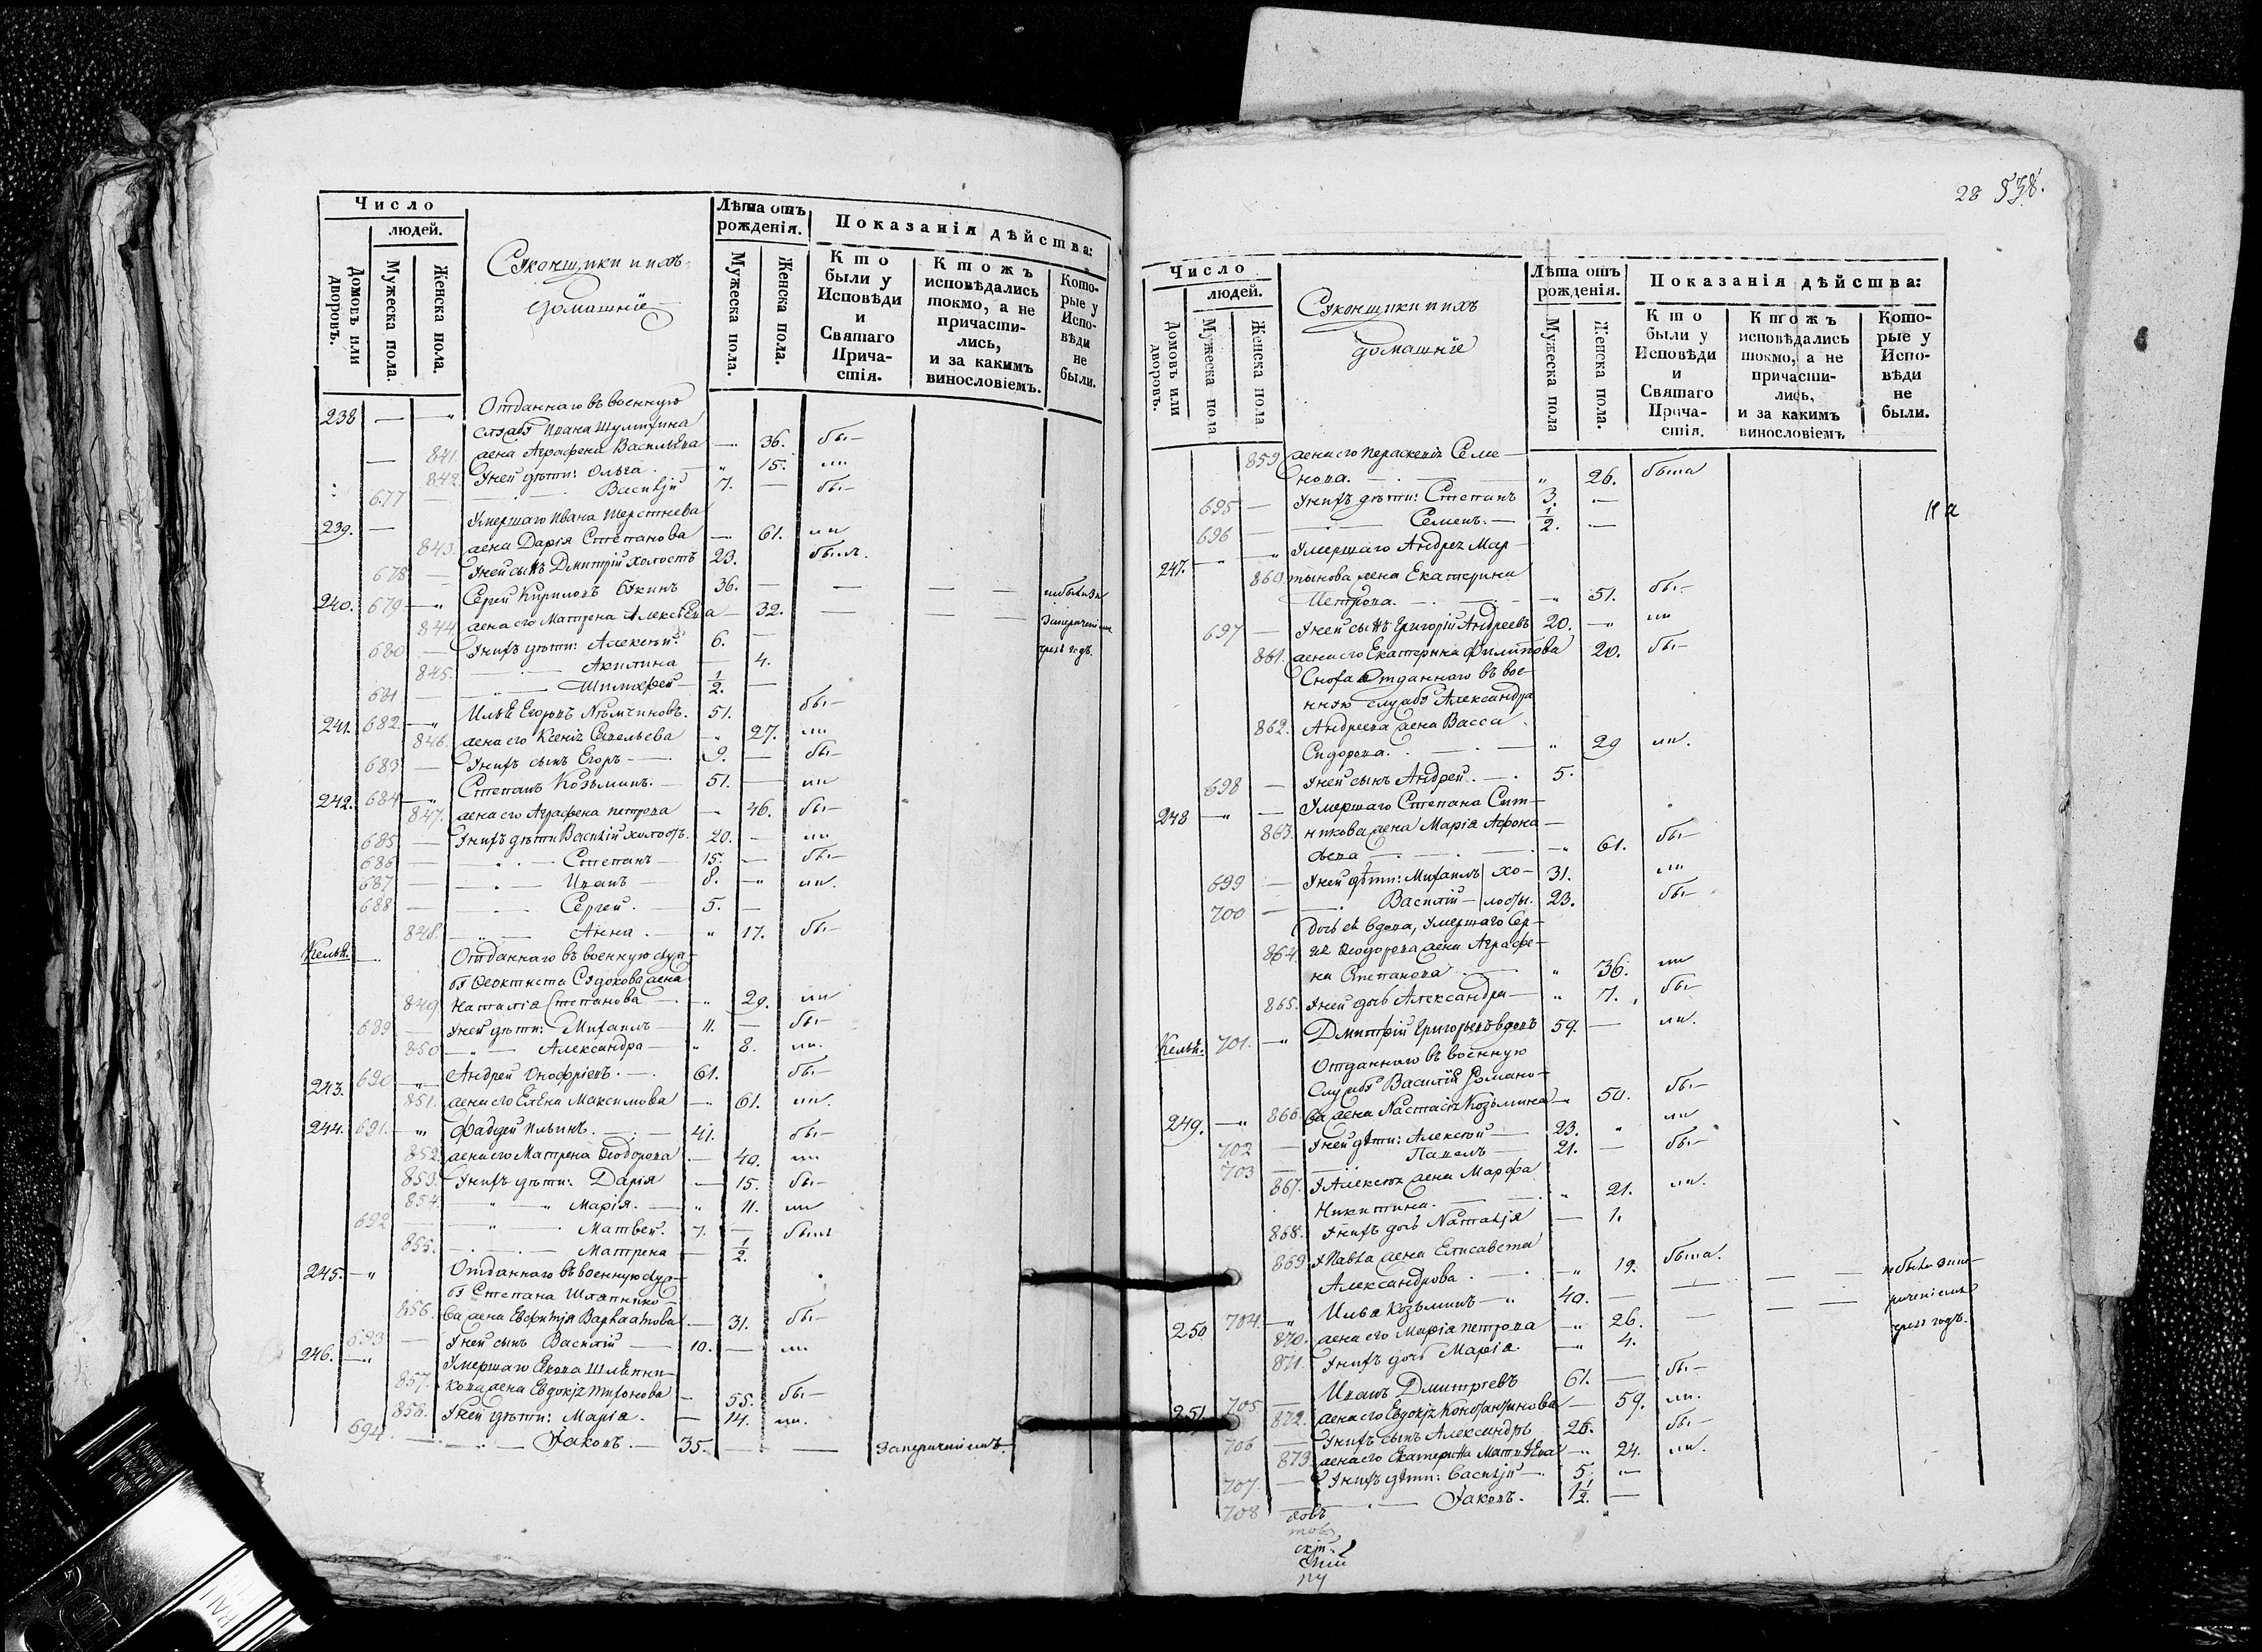 Число
людей.
Домовъ или дворовъ.
Мужеска пола.
Женска пола.
домашніе
Лѣта отъ рожденія.
Мужеска пола.
Женска пола.
Показанія дѣйства:
Кто были у Исповѣди и Святаго Причастія.
Ктожъ исповѣдались токмо, а не причастились, и за какимъ винословіемъ.
Которые у Исповѣди не были.
238 — " Отданнаго въ военную
службу Ивана
841. жена Аграфена Васильева — 36. бы—
842. У ней дѣти: Ольга — " 15. ли
677 — Василій 7. — бы—
239. — Умершаго Ивана Шерстнева
843. жена Дарія Степанова — 61. ли
678 — У ней сынъ Дмитрій холостъ 23. былъ.
240. 679 — " Сергей Кириловъ 36. — — —
844. жена его Матрена Алексѣева — 32. — —
680 — У нихъ дѣти: Алексѣй 6. —
845. — Акилина — 4.
681 — — Тимофей — 1/2. —
241. 682. — " Илья Егоровъ 51. бы—
846. жена его Ксенія — " 27. ли
683 — У нихъ сынъ Егоръ — 9. — бы—
242. 684 — " Степанъ Козьминъ. — 51. — ли
847. жена его Аграфена Петрова — " 46. бы—
685 — У нихъ дѣти Василій холостъ. 20. — ли
686 — — Степанъ — 15. — бы—
687 — — Иванъ — 8. — " ли.
688 — — Сергей. — 5. —
848. — " — Анна. — " 17. бы—
Келья. — Отданнаго въ военную служ-
бу Ѳеоктиста жена
849. Наталіа Степанова — " 29. ли
689 — У ней дѣти: Михаилъ — 11. — бы—
850 — " — Александра — " 8. ли.
243. 690 — " Андрей Онофріевъ. — 61. бы—
851. жена его Елена Максимова — " 61. ли.
244. 691. — " Фаддей Ильинъ. — 41. бы—
852. жена его Матрена Ѳеодорова — 40. ли
853. У нихъ дѣти: Дарія — 15. бы—
854. — " — Маріа. — " 11. ли
692 — — " — Матвей. 7. — былъ
855. — Матрена — 1/2.
245. — " Отданнаго въ военную служ-
бу Степана Шляпнико-
856. ва жена — 31. бы—
693 — У ней сынъ Василій — 10. — ли
246. — " Умершаго
857. кова жена Евдокія Тихонова — 55. бы—
858. У ней дѣти: Маріа. — 14. ли.
694. — " — Іаковъ. — 35. — —
28 538.
Число
людей.
Домовъ или дворовъ.
Мужеска пола
Женска пола
домашніе
Лѣта отъ рожденія.
Мужеска пола
Женска пола.
Показанія дѣйства:
Кто были у Исповѣди и Святаго Причастія.
Ктожъ исповѣдались токмо, а не причастились, и за какимъ винословіемъ
Которые у Исповѣди не были.
859 жена его Параскевія Семе—
нова. — " 26. была
695 — У нихъ дѣти: Степанъ 3. —
696 — — Семенъ. — 1/2. —
247. — " Умершаго Андрея Мар—
860. тынова жена Екатерина
Петрова. — " 51. бы—
697 — У ней сынъ Григорій Андреевъ 20. — " ли
861. жена его Екатерина Филипова 20. бы—
Сноха отданнаго въ вое-
нную службу Александра
862. Андреева жена Васса
Сидорова. — " 29 ли.
698 — У ней сынъ Андрей. — 5.
248 — " — Умершаго Степана Сит—
863. никова жена Маріа Афона—
сьева — " 61. бы—
699 — У ней дѣти: Михаилъ хо— 31. ли
700 — — Василій — лосты. 23. бы—
дочь ея вдова, умершаго Сер—
864. гея Ѳеодорова жена Аграфе—
на Степанова — " 36. ли
865. У ней дочь Александра — " 7. бы—
Келья. 701. — " Дмитрій Григорьевъ вдовъ 59. — ли.
Отданнаго въ военную
службу Василія Романо—
249. — " 866. ва жена Настасія Козьмина — " 50. бы—
702 — У ней дѣти: Алексѣй — 23. " ли
703 — — Павелъ — 21. — бы—
867. У Алексѣя жена Марфа
Никитина. — " 21. ли.
868. У нихъ дочь Наталія — 1.
869 У Павла жена Елисавета
Александрова. — " 19. была.
250 704 — " Илья Козьминъ — " 40. — — —
870. жена его Маріа Петрова — " 26. — — —
871. У нихъ дочь Маріа. — " 4.
251. 705 — Иванъ Дмитріевъ 61. — бы—
872. жена его Евдокія Константинова — 59. ли.
706 — У нихъ сынъ Александръ 26. бы—
873. жена его Екатерина Матвѣева — " 24. ли.
707. — У нихъ дѣти: Василій — 5. " —
708 — — Іаковъ. 1 1/2. —